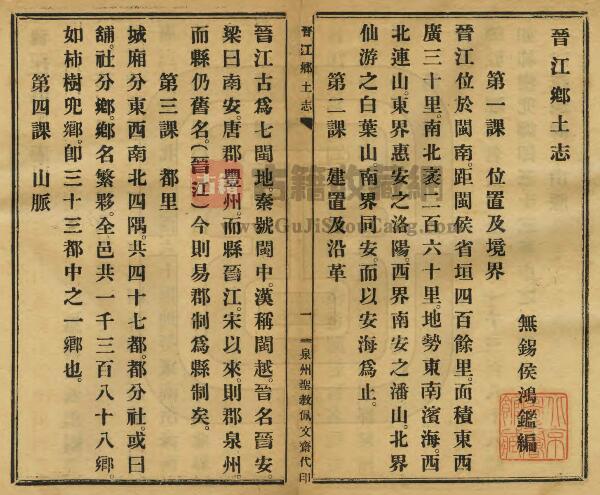 晉江鄉土志
無錫侯鴻鑑編
第一課 位置及境界
晉江位於閩南。距閩侯省垣四百餘里。面積東西
廣三十里。南北袤二百六十里。地勢東南濱海。西
北連山。東界惠安之洛陽。西界南安之潘山。北界
仙游之白葉山。南界同安。而以安海爲止。
第二課 建置及沿革
晉江鄉土志
一
泉州聖教佩文齋代印
晉江古爲七閩地。秦號閩中。漢稱閩越。晉名晉安。
梁曰南安。唐郡豐州。而縣晉江。宋以來。則郡泉州。
而縣仍舊名。(晉江)今則易郡制爲縣制矣。
第三課 都里
城廂分東西南北四隅。共四十七都。都分社。或曰
舖。社分鄉。鄉名繁夥。全邑共一千三百八十八鄉。
如柿樹兜鄉。卽三十三都中之一鄉也。
第四課 山脈
古籍收藏網
www.GuJiShouCang.com